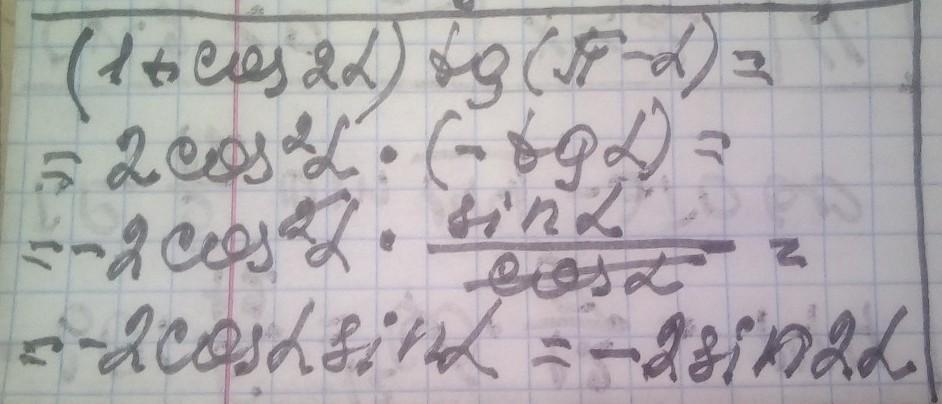 (1 + cos 2α) tg(π - α) =
= 2cos²α · (-tgα) =
= -2cos²α · sinα / cosα =
= -2cosα sinα = -2sin2α